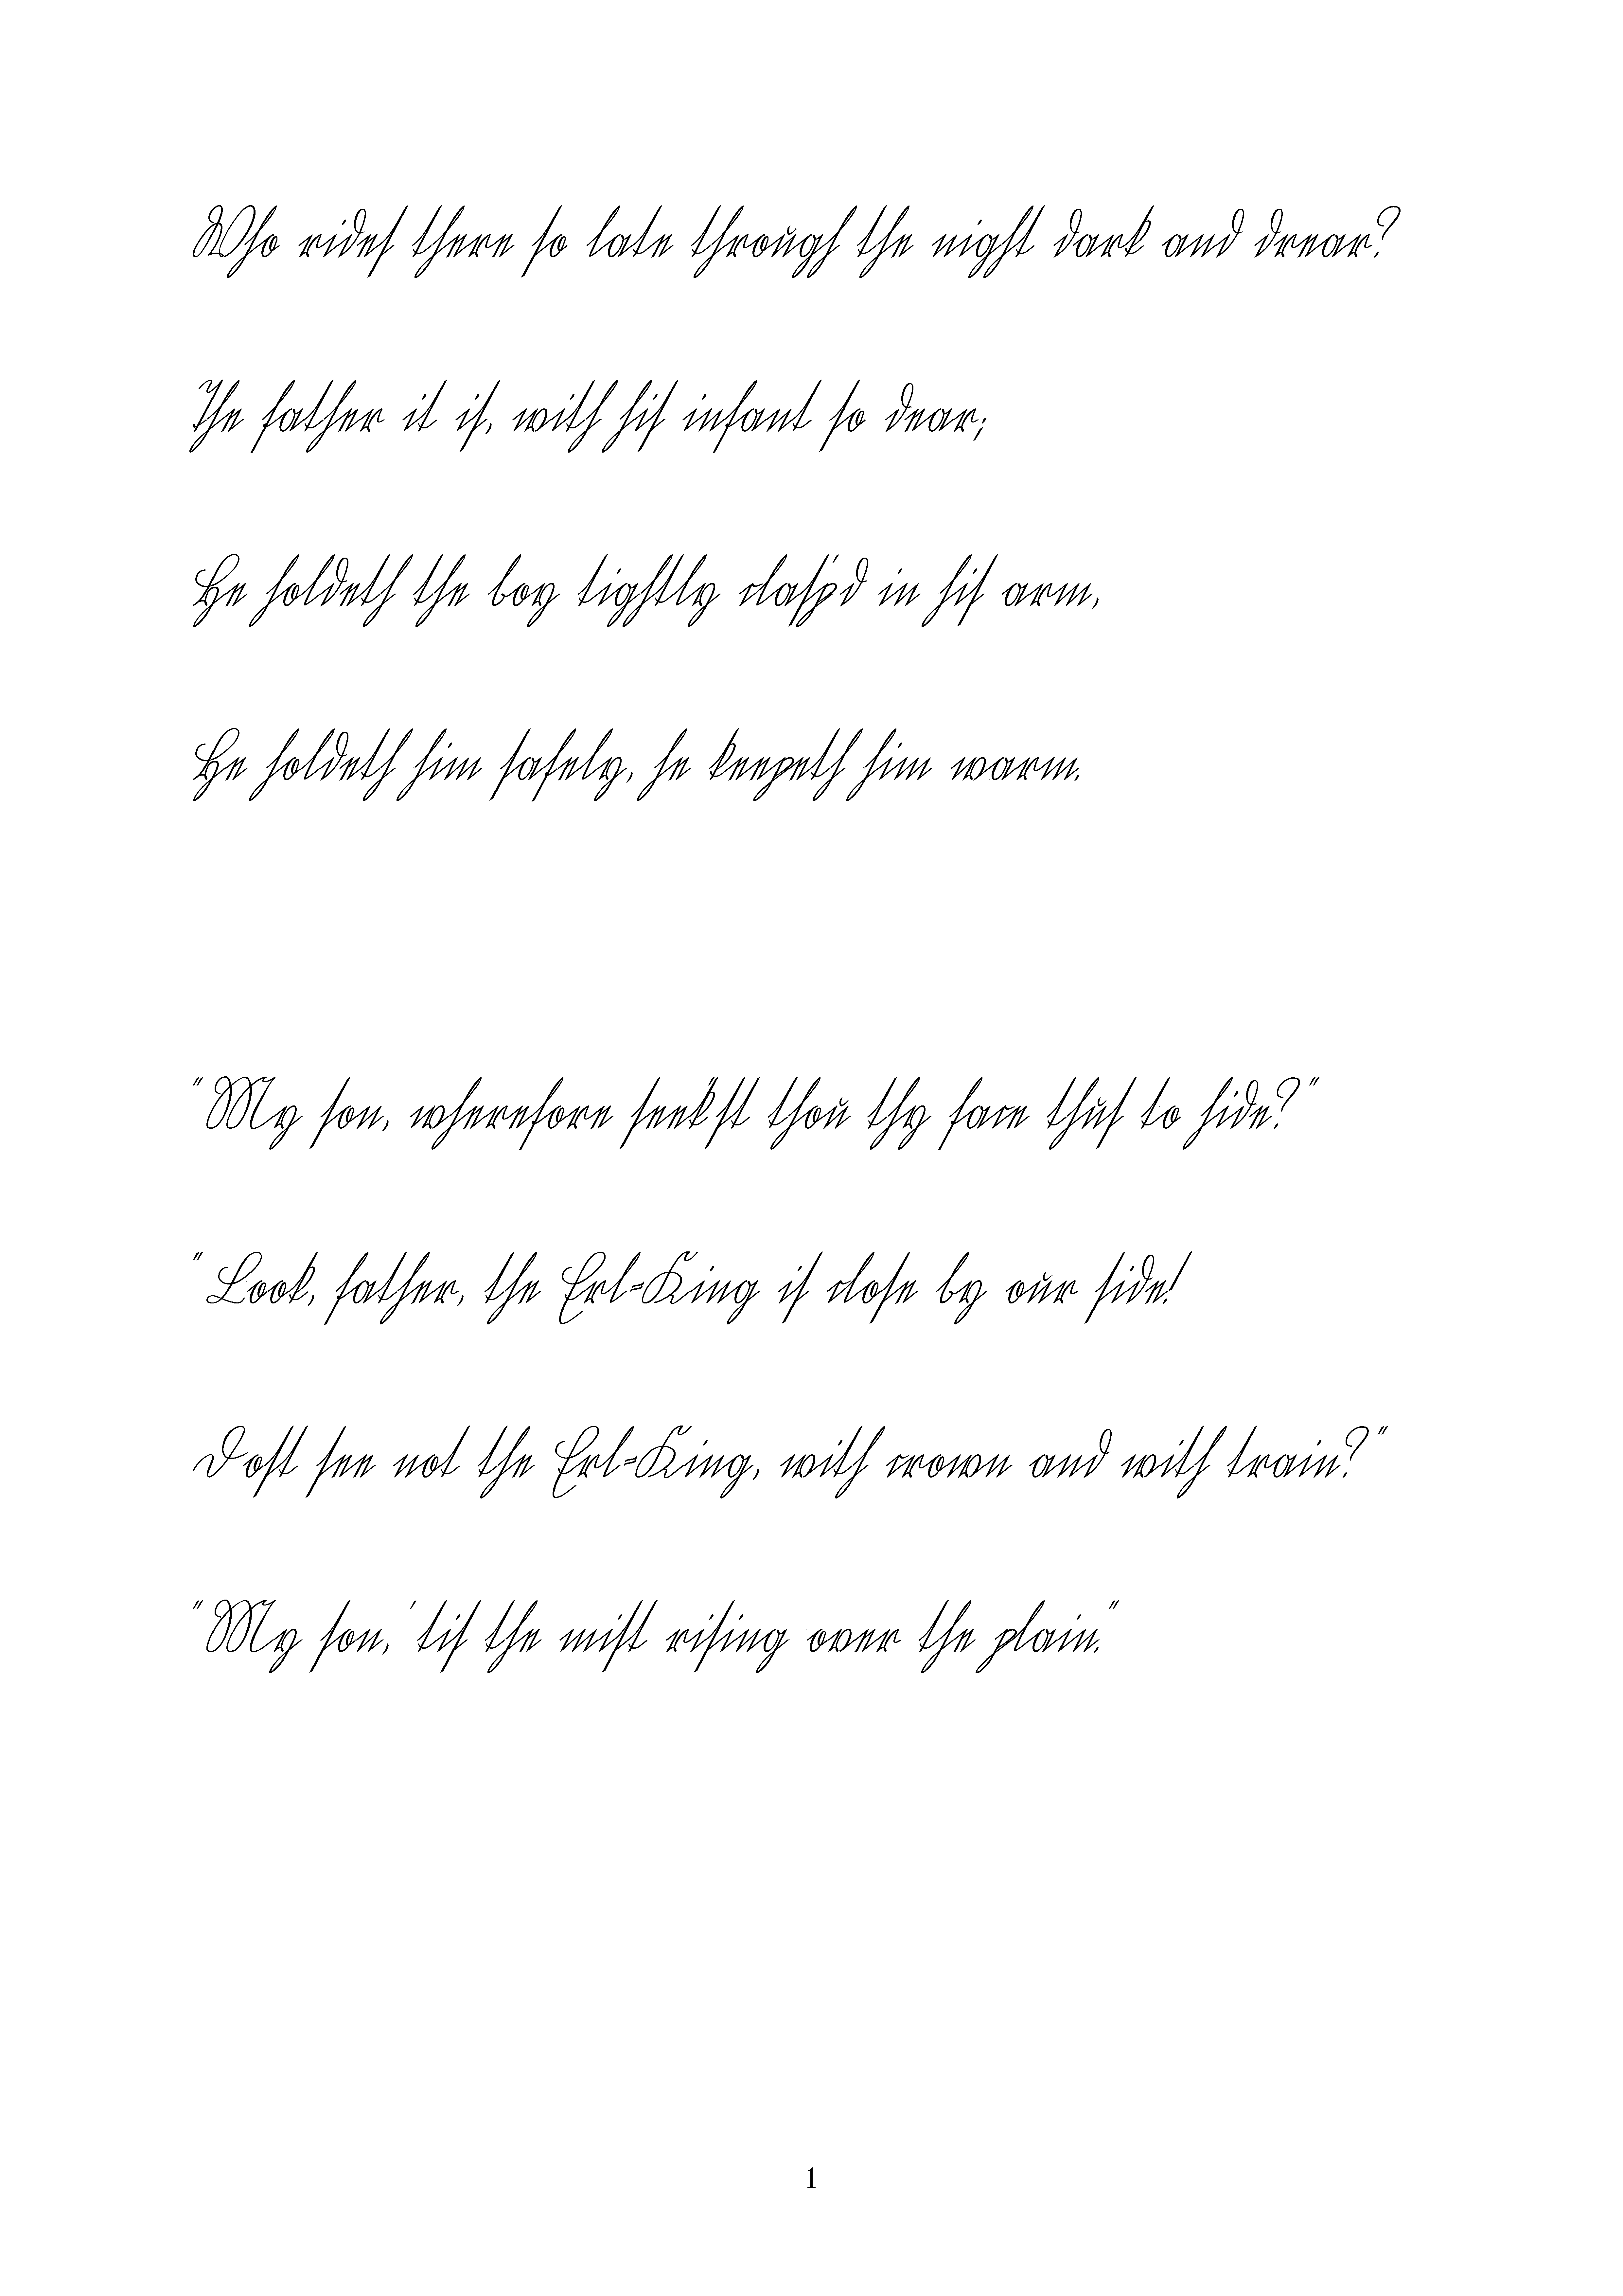 Who rides there so late through the night dark and drear?
The father it is, with his infant so dear;
He holdeth the boy tightly clasp'd in his arm,
He holdeth him safely, he keepeth him warm.
"My son, wherefore seek'st thou thy face thus to hide?"
"Look, father, the Erl-King is close by our side!
Dost see not the Erl-King, with crown and with train?"
"My son, 'tis the mist rising over the plain."
1